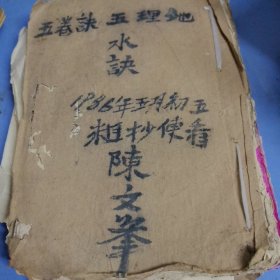 地理五訣五卷
水訣
1986年五月初五
粗抄使看
陳文峯